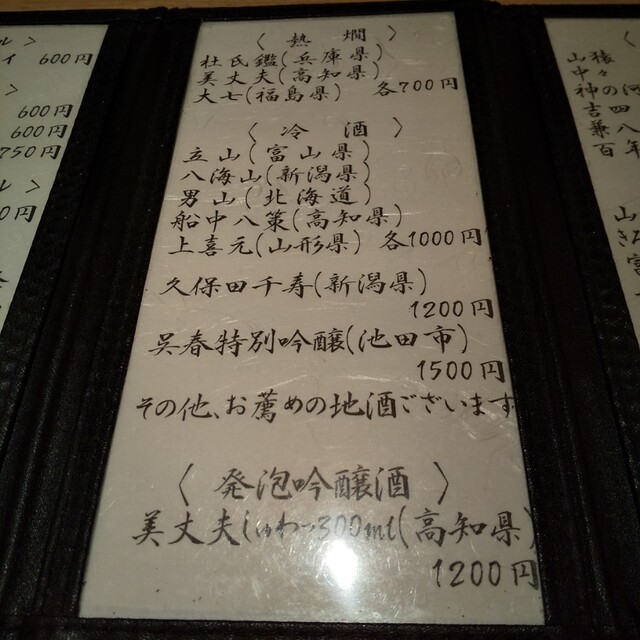 〈熱燗〉
杜氏鑑(兵庫県)
美丈夫(高知県)
大七(福島県) 各700円
〈冷酒〉
立山(富山県)
八海山(新潟県)
男山(北海道)
船中八策(高知県)
上喜元(山形県) 各1000円
久保田千寿(新潟県)
1200円
呉春特別吟醸(池田市)
1500円
その他、お薦めの地酒ございます
〈発泡吟醸酒〉
美丈夫しゅわっ300ml(高知県)
1200円
ル〉
600円
〉
600円
600円
750円
ル〉
0円
山猿
中々
神の河
吉四
兼八
百年
山
富